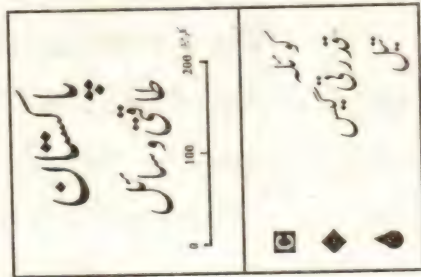 پاکستان
طاقتی وسائل
0 100 200 کلومیٹر
C کوئلہ
قدرتی گیس
تیل